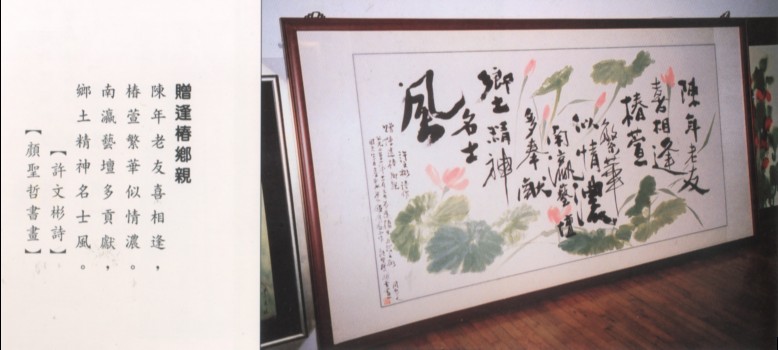 贈逢椿鄉親
陳年老友喜相逢，
椿萱繁華似情濃。
南瀛藝壇多貢獻，
鄉土精神名士風。
【許文彬詩】
【顏聖哲書畫】
陳年老友
喜相逢
椿萱
繁華
似情濃
南瀛藝壇
多奉獻
鄉土精神
名士
風